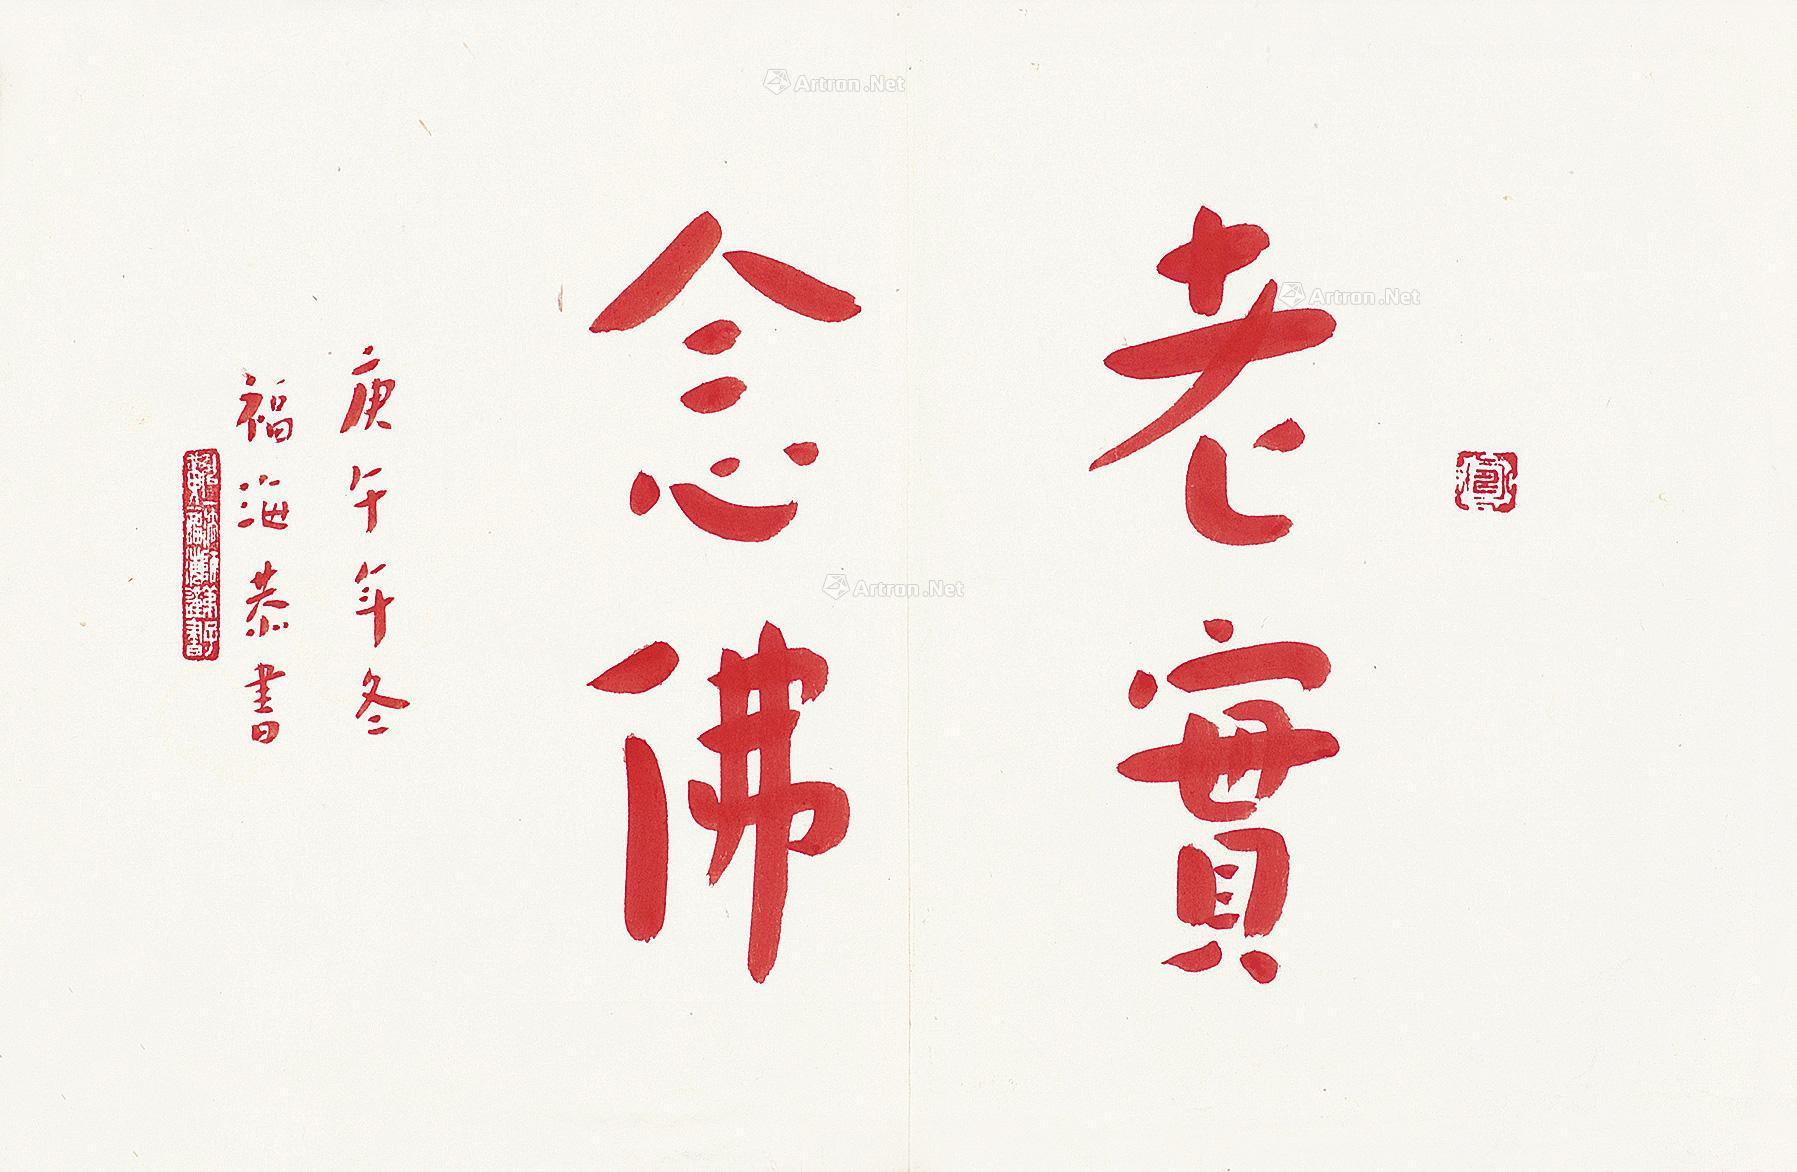 老實
念佛
庚午年冬
福海恭書
Artron.Net
Artron.Net
Artron.Net